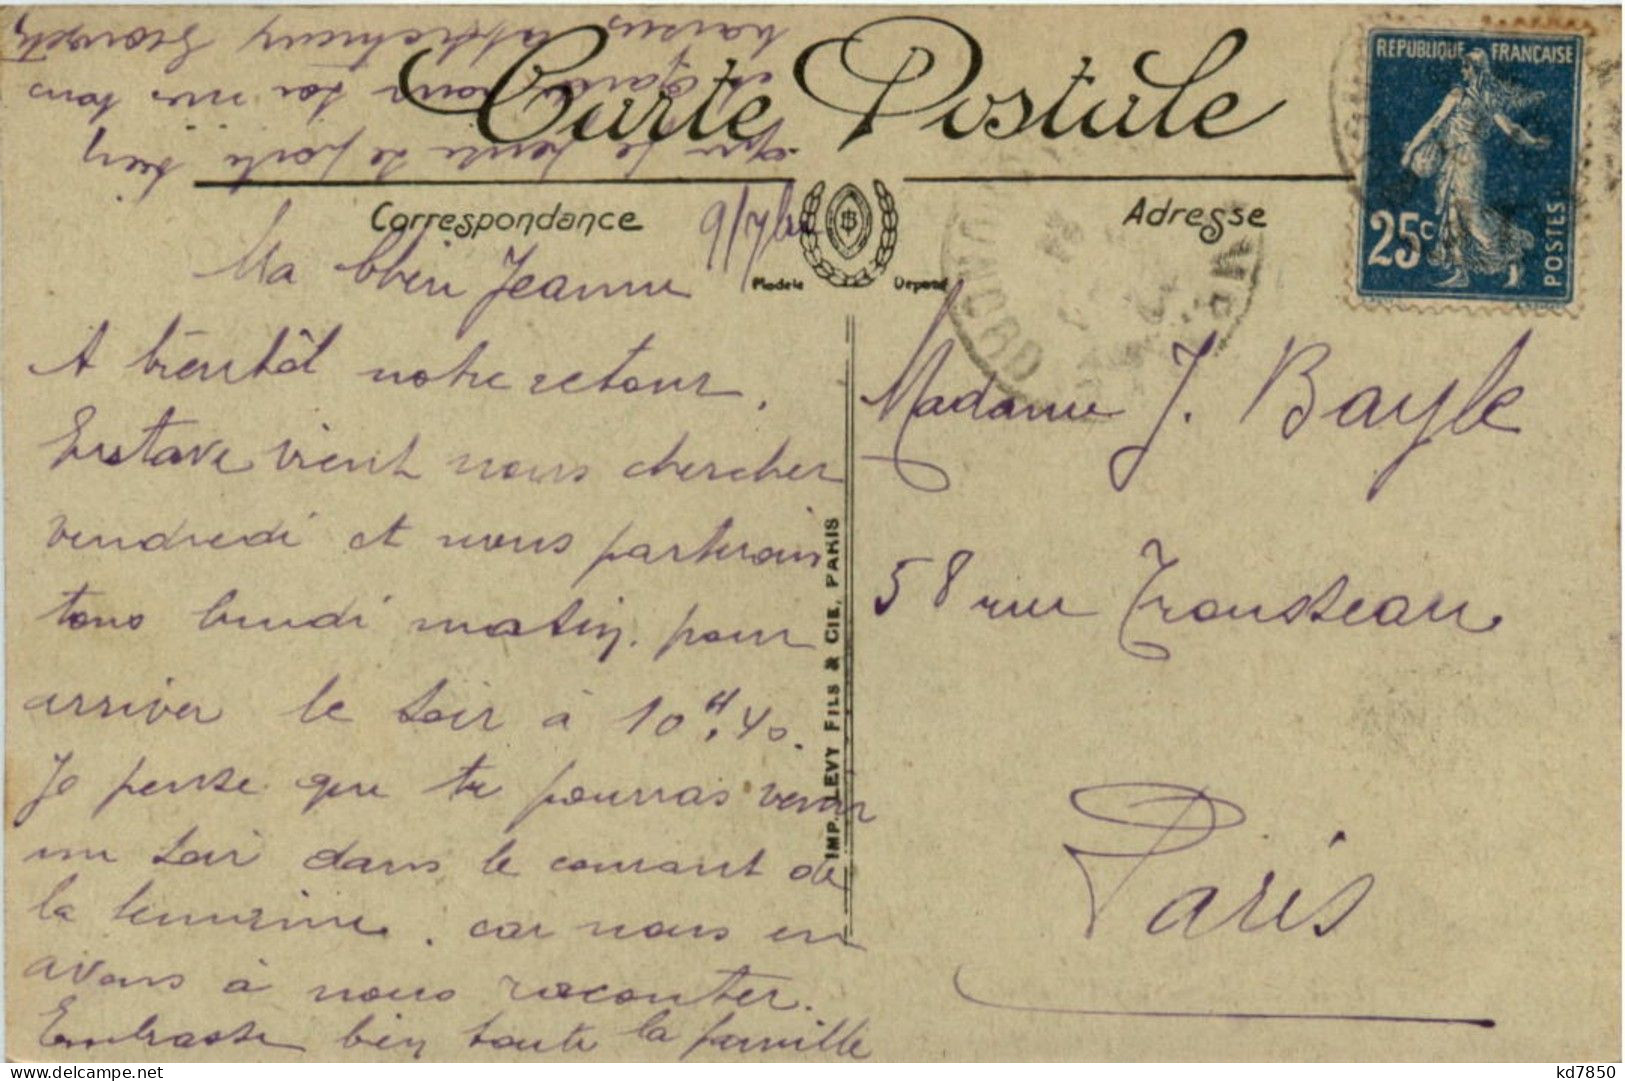 Carte Postale
Correspondance
Adresse
Modèle Déposé
REPUBLIQUE FRANÇAISE
25c
POSTES
IMP. LEVY FILS & CIE. PARIS
9/7/
Ma bien Jeanne
A bientôt notre retour.
Gustave vient nous chercher
vendredi et nous partirons
tous lundi matin. pour
arriver le soir à 10H,40.
Je pense que tu pourras venir
un soir dans le courant de
la semaine. car nous en
avons à nous raconter.
Embrasse bien toute la famille
que je pense se porte bien
et garde pour toi nos bons
baisers affectueux
Madame J. Bayle
58 rue Trousseau
Paris
kd7850